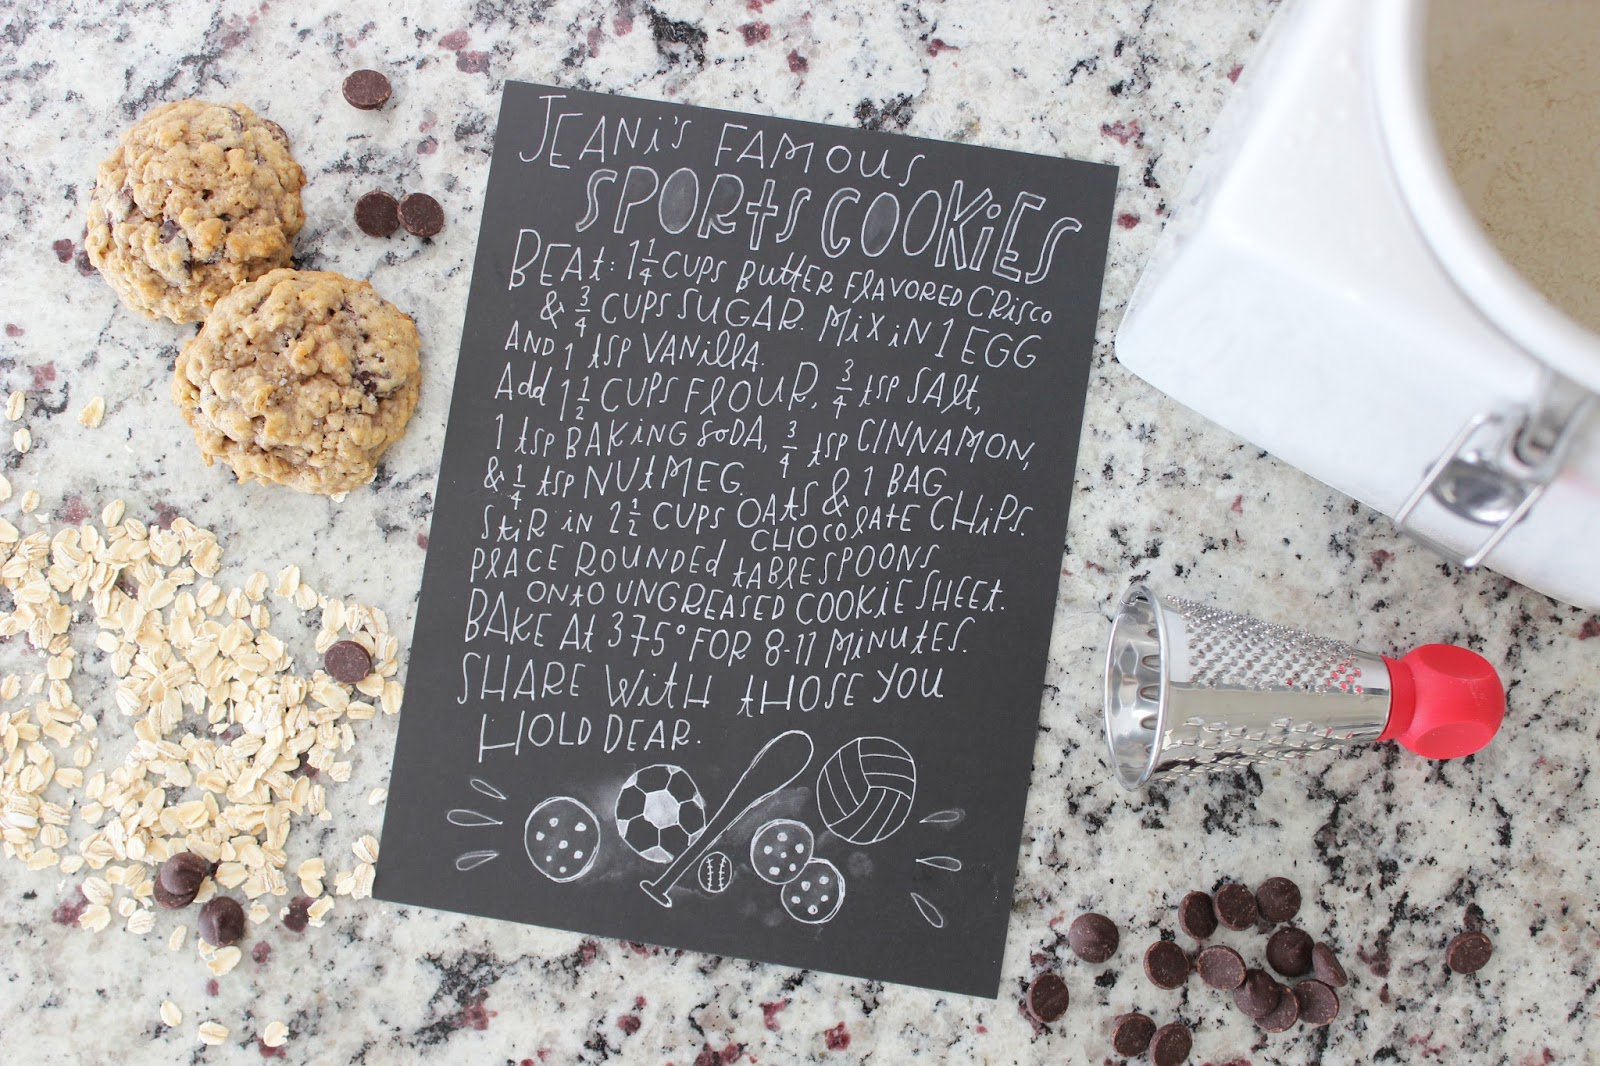 JEANi'S FAMOUS
SPORtS COOKiES
BEAt: 1 1/4 CUPS BUttER FlAVORED CRISCO
& 3/4 CUPS SUGAR. MiX iN 1 EGG
AND 1 tSP VANillA.
Add 1 1/2 CUPS FlOUR, 3/4 tSP SAlt,
1 tSP BAKiNG SODA, 3/4 tSP CINNAMON,
& 1/4 tSP NUtMEG.
StiR iN 2 1/2 CUPS OAtS & 1 BAG
CHOCOlAtE CHiPS.
PlACE ROUNDEd tAblESPOONS
ONtO UNGREASED COOKiE SHEEt.
BAKE At 375° FOR 8-11 MiNUtES.
SHARE WitH tHOSE YOU
HOLD DEAR.